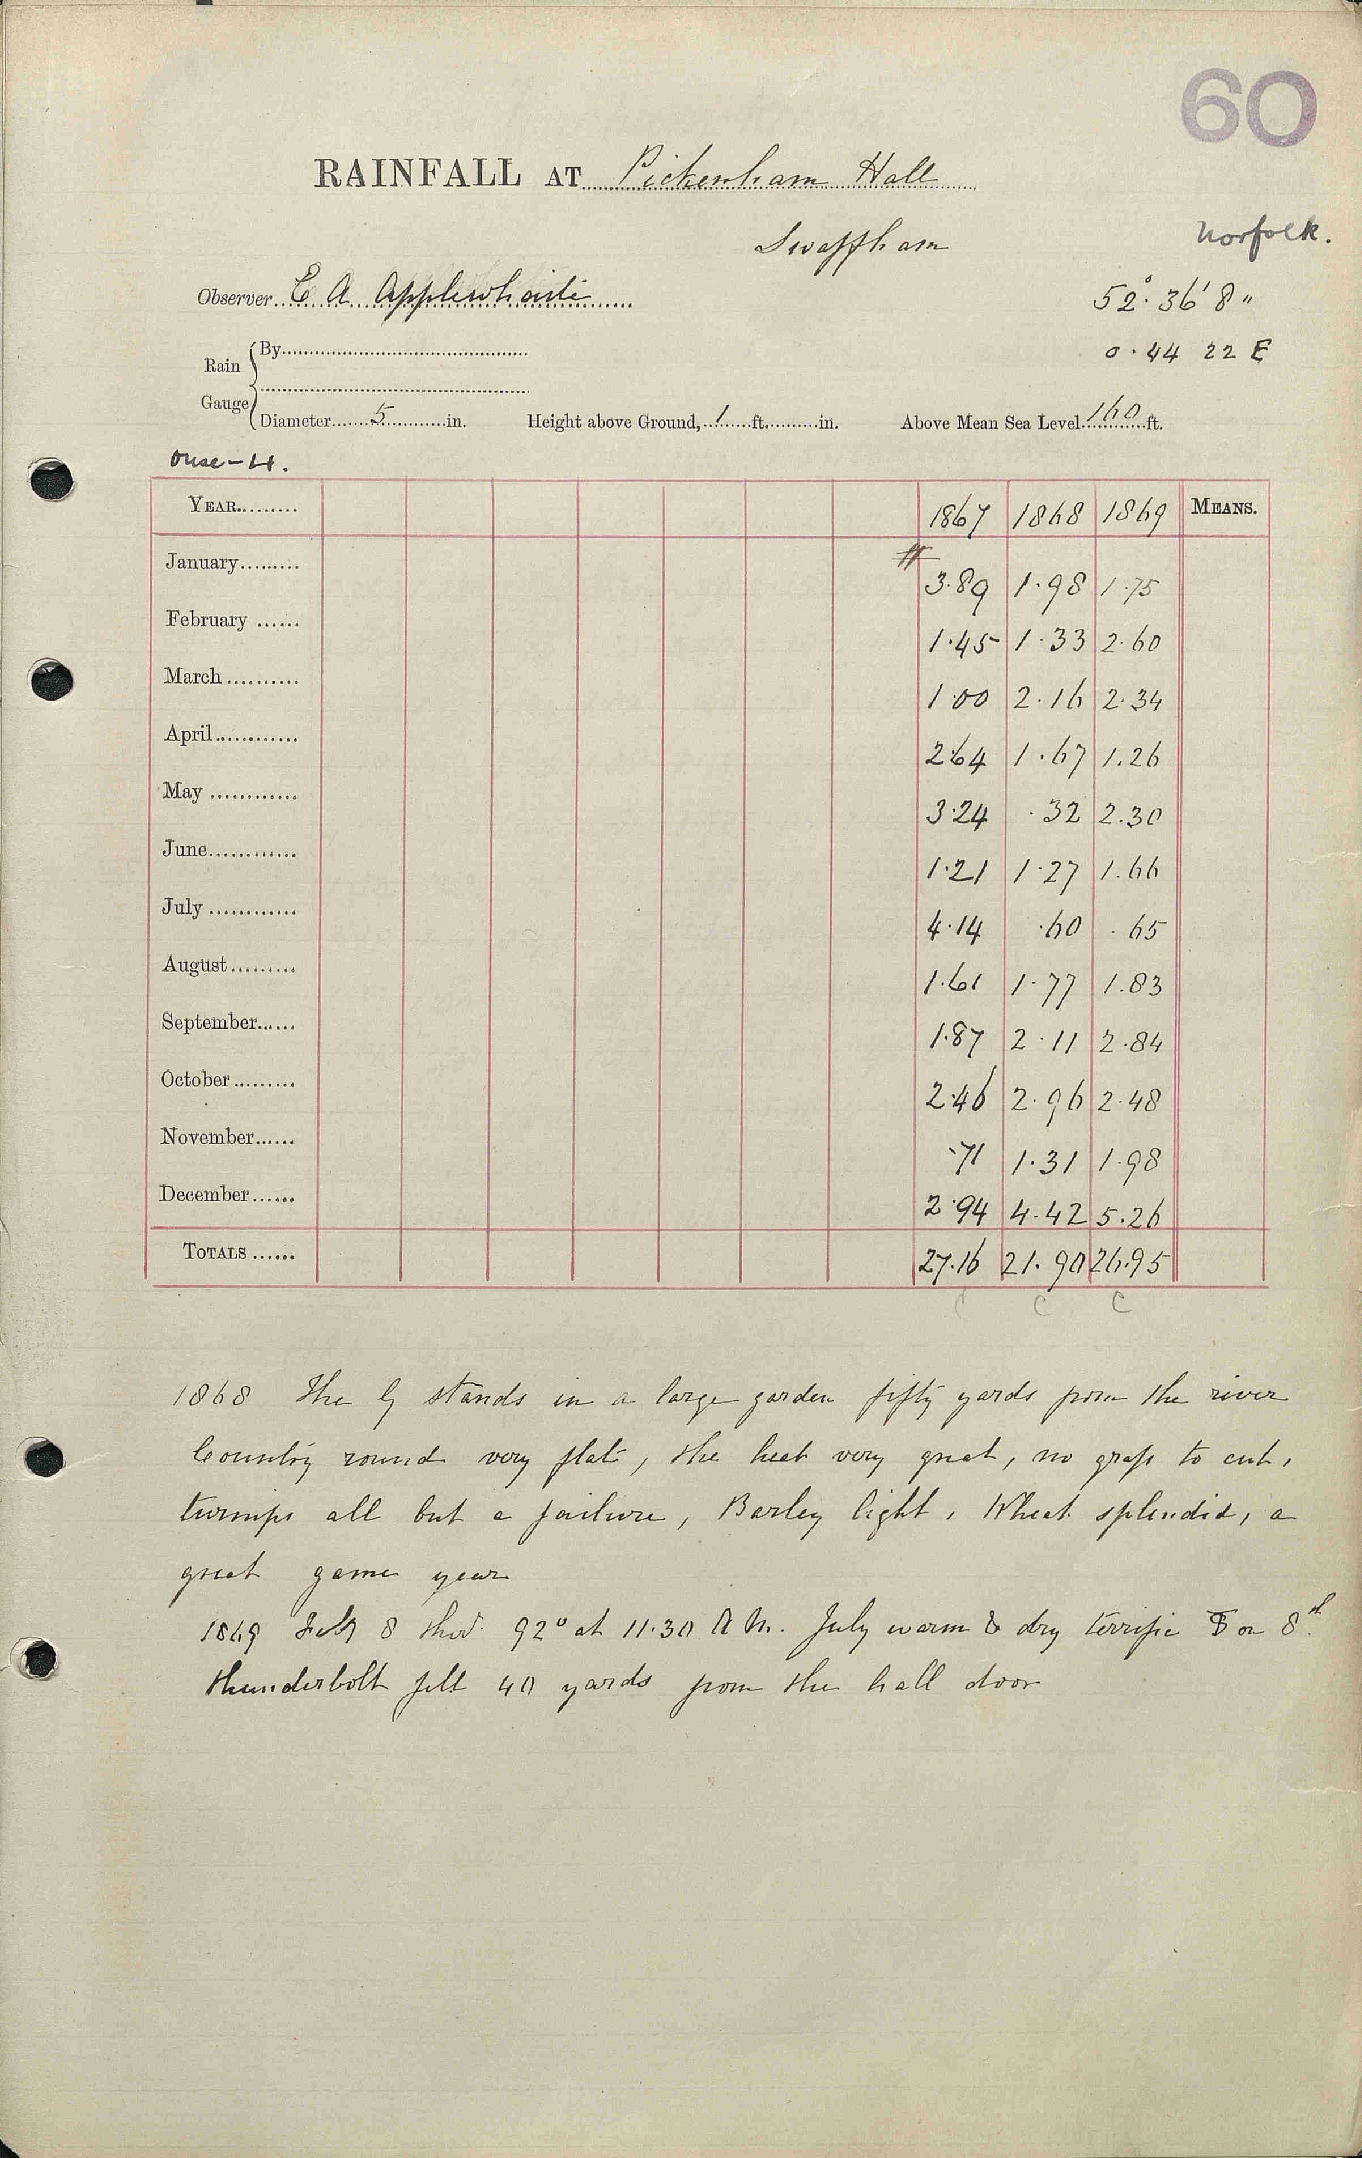 60
RAINFALL AT Pickenham Hall
Swaffham
Norfolk.
Observer E A Applewhaite
52° 36' 8"
0. 44 22 E
Rain Gauge
By
Diameter 5 in. Height above Ground, 1 ft. in. Above Mean Sea Level 160 ft.
Ouse-H.
YEAR 1867 1868 1869 MEANS.
January 3.89 1.98 1.75
February 1.45 1.33 2.60
March 1.00 2.16 2.34
April 2.64 1.67 1.26
May 3.24 .32 2.30
June 1.21 1.27 1.66
July 4.14 .60 .65
August 1.61 1.77 1.83
September 1.87 2.11 2.84
October 2.46 2.96 2.48
November .71 1.31 1.98
December 2.94 4.42 5.26
TOTALS 27.16 21.90 26.95
C C C
1868 The G stands in a large garden fifty yards from the river
Country round very flat, the heat very great, no grass to cut,
turnips all but a failure, Barley light, Wheat splendid, a
great game year
1869 8 92° at 11.30 A M. July warm & dry terrific on 8th.
thunderbolt fell 40 yards from the hall door